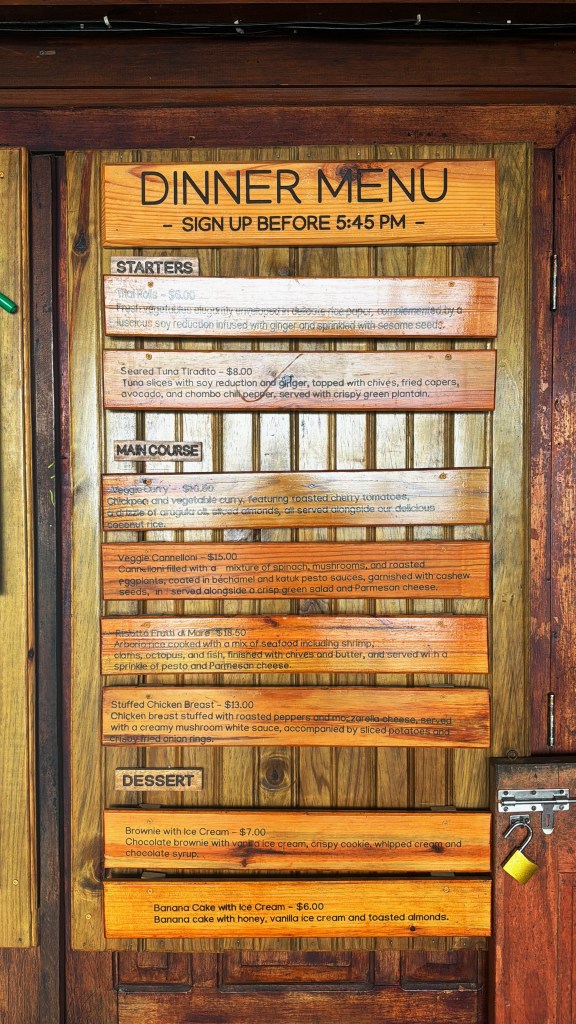 DINNER MENU
– SIGN UP BEFORE 5:45 PM –
STARTERS
Rolls – $6.00
Fresh vegetables elegantly enveloped in delicate rice paper, complemented by a
luscious soy reduction infused with ginger and sprinkled with sesame seeds.
Seared Tuna Tiradito – $8.00
Tuna slices with soy reduction and ginger, topped with chives, fried capers,
avocado, and chombo chili pepper, served with crispy green plantain.
MAIN COURSE
Veggie Curry –
Chickpea and vegetable curry, featuring roasted cherry tomatoes,
a drizzle of arugula oil, sliced almonds, all served alongside our delicious
coconut rice.
Veggie Cannelloni – $15.00
Cannelloni filled with a mixture of spinach, mushrooms, and roasted
eggplants, coated in béchamel and katuk pesto sauces, garnished with cashew
seeds, served alongside a crisp green salad and Parmesan cheese.
Risotto Frutti di Mare $18.50
Arborio rice cooked with a mix of seafood including shrimp,
clams, octopus, and fish, finished with chives and butter, and served with a
sprinkle of pesto and Parmesan cheese.
Stuffed Chicken Breast – $13.00
Chicken breast stuffed with roasted peppers and mozzarella cheese, served
with a creamy mushroom white sauce, accompanied by sliced potatoes and
crisby fried onion rings.
DESSERT
Brownie with Ice Cream – $7.00
Chocolate brownie with vanilla ice cream, crispy cookie, whipped cream and
chocolate syrup.
Banana Cake with Ice Cream – $6.00
Banana cake with honey, vanilla ice cream and toasted almonds.